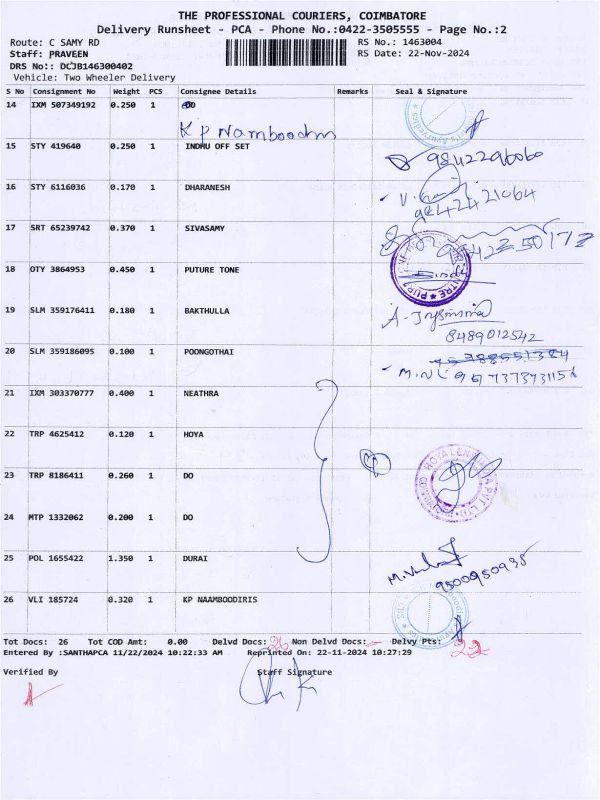 THE PROFESSIONAL COURIERS, COIMBATORE
Delivery Runsheet - PCA - Phone No.:0422-3505555 - Page No.:2
Route: C SAMY RD
RS No.: 1463004
Staff: PRAVEEN
RS Date: 22-Nov-2024
DRS No!: DCJB146300402
Vehicle: Two Wheeler Delivery
S No Consignment No Weight PCS Consignee Details Remarks Seal & Signature
14 IXM 507349192 0.250 1
K P Namboodiris
15 STY 419640 0.250 1 INDHU OFF SET
9842296060
16 STY 6116036 0.170 1 DHARANESH
9842421064
17 SRT 65239742 0.370 1 SIVASAMY
18 OTY 3864953 0.450 1 PUTURE TONE
19 SLM 359176411 0.180 1 BAKTHULLA
8489012542
20 SLM 359186095 0.100 1 POONGOTHAI
21 IXM 303370777 0.400 1 NEATHRA
22 TRP 4625412 0.120 1 HOYA
23 TRP 8186411 0.260 1 DO
24 MTP 1332062 0.200 1 DO
25 POL 1655422 1.350 1 DURAI
9500950935
26 VLI 185724 0.320 1 KP NAAMBOODIRIS
Tot Docs: 26 Tot COD Amt: 0.00 Delvd Docs: 26 Non Delvd Docs: - Delvy Pts: 22
Entered By :SANTHAPCA 11/22/2024 10:22:33 AM Reprinted On: 22-11-2024 10:27:29
Verified By
Staff Signature